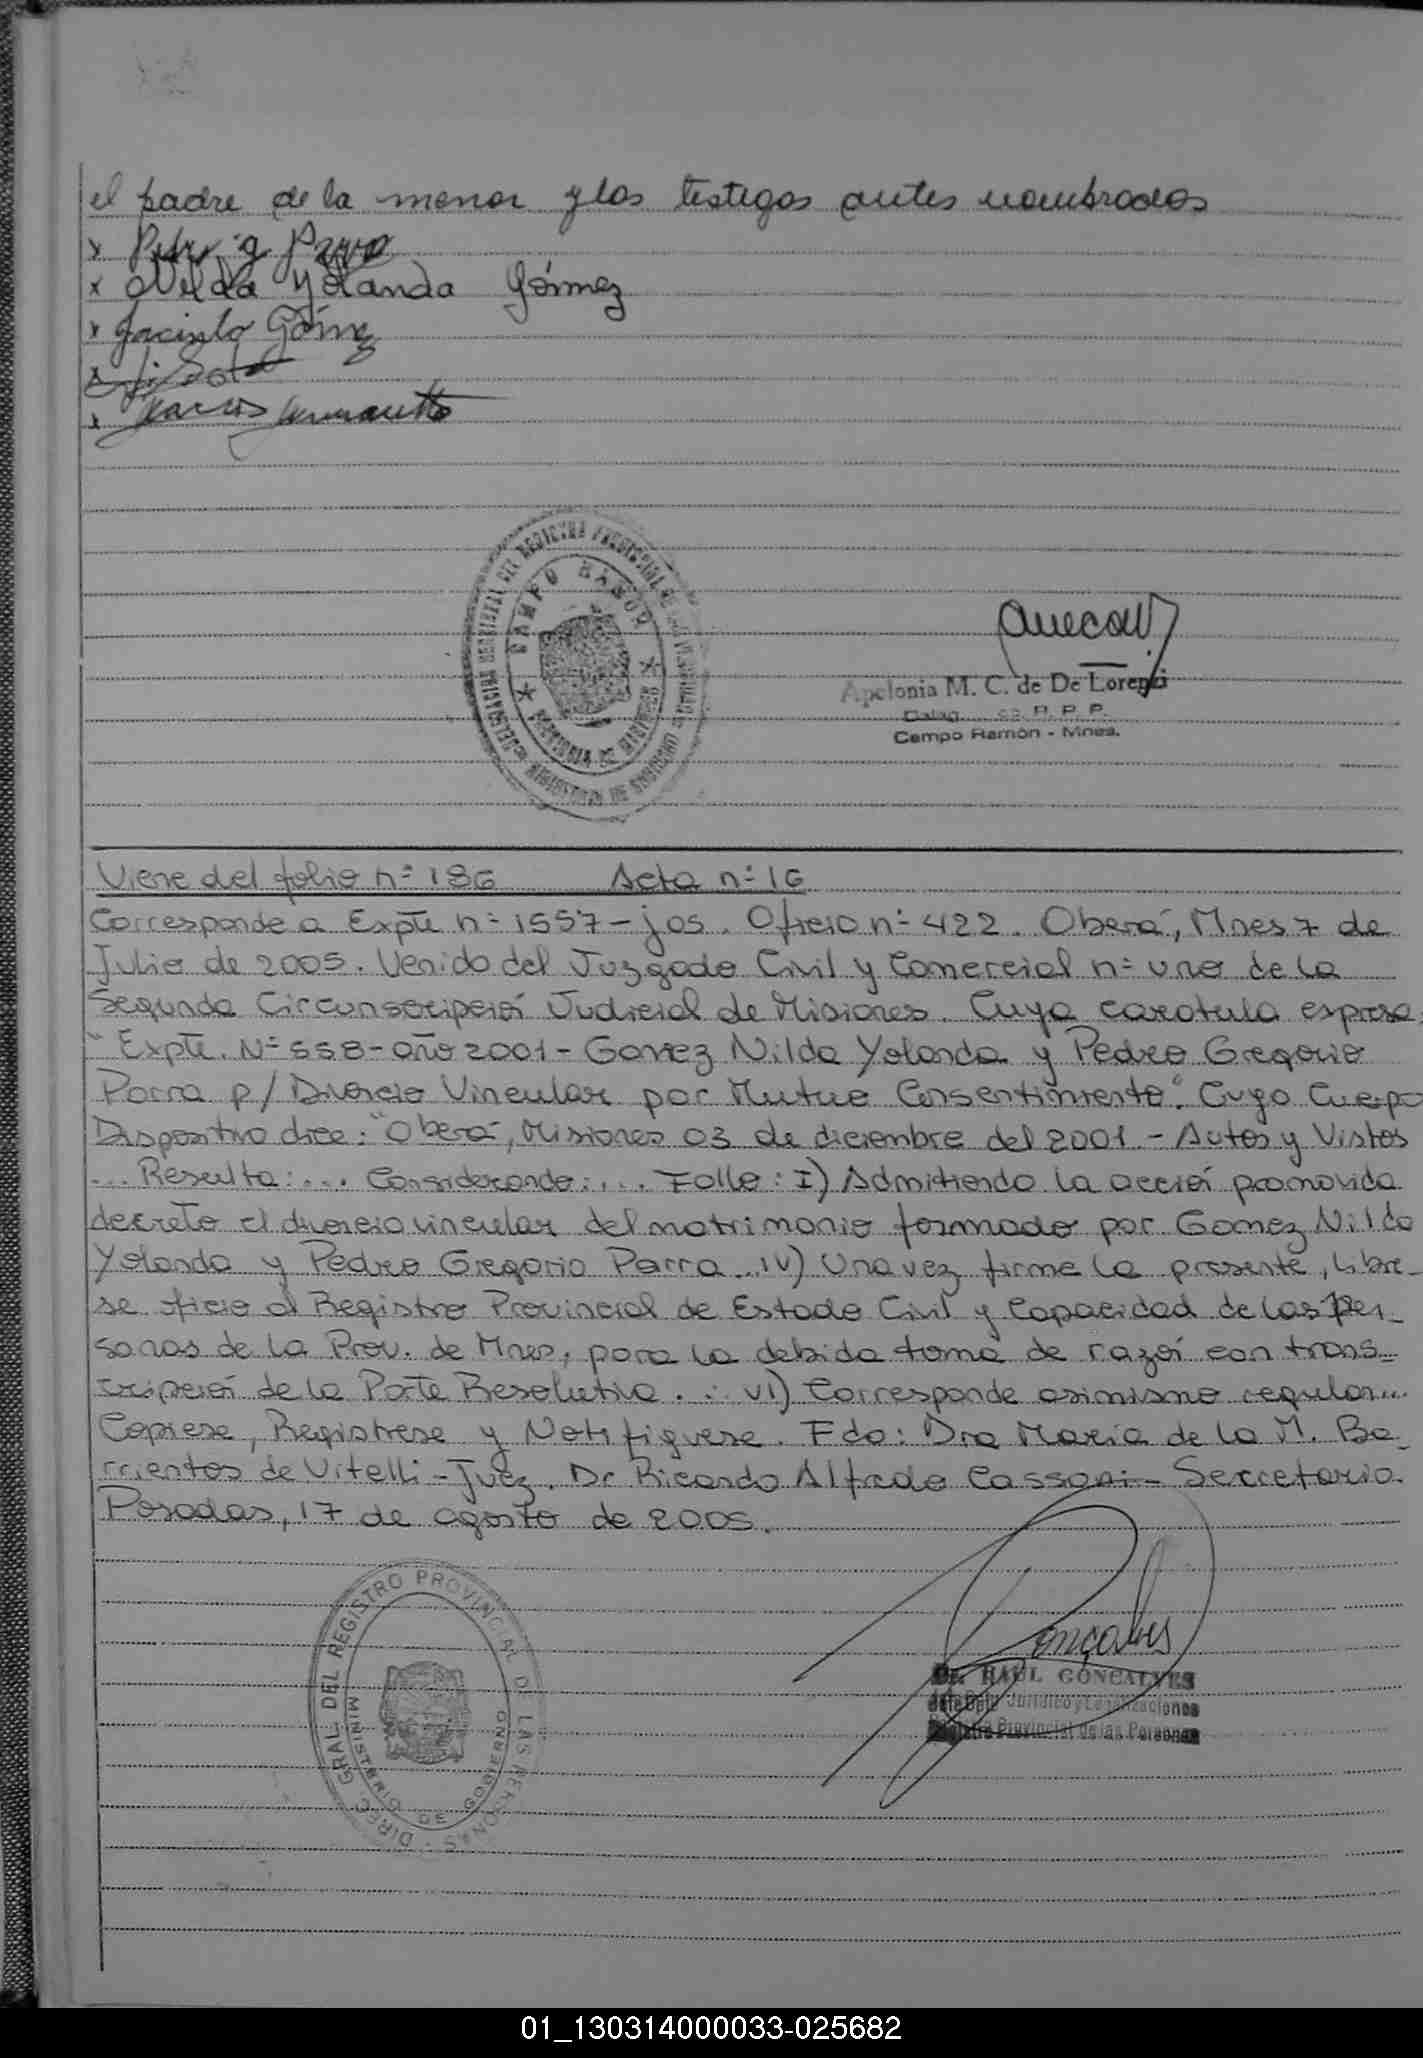 el padre de la menor y los testigos antes nombrados
x Pedro g Parra
x Nilda Yolanda Gómez
x Jacinto Gómez
x Sota
x
DELEGACION SECCIONAL DEL REGISTRO PROVINCIAL DE LAS PERSONAS
CAMPO RAMON
PROVINCIA DE MISIONES
Apolonia M. C. de De Lorenzi
R. P. P.
Campo Ramón - Mnes.
Viene del folio nº 186 Acta nº 16
Corresponde a Expte nº 1557-jos. Oficio nº 422. Oberá, Mnes 7 de
Julio de 2005. Venido del Juzgado Civil y Comercial nº uno de la
Segunda Circunscripción Judicial de Misiones. Cuya caratula expresa:
"Expte. Nº 558-año 2001- Gomez Nilda Yolanda y Pedro Gregorio
Parra p/ Divorcio Vincular por Mutuo Consentimiento". Cuyo Cuerpo
Dispositivo dice: "Oberá, Misiones 03 de diciembre del 2001.- Autos y Vistos
... Resulta:... Considerando:... Fallo: I) Admitiendo la acción promovida
decreto el divorcio vincular del matrimonio formado por Gomez Nilda
Yolanda y Pedro Gregorio Parra...IV) Una vez firme la presente, Libre-
se oficio al Registro Provincial de Estado Civil y Capacidad de las Per-
sonas de la Prov. de Mnes, para la debida toma de razón con trans-
cripción de la Parte Resolutiva... VI) Corresponde asimismo regular...
Copiese, Registrese y Notifiquese. Fdo: Dra María de la M. Ba-
rrientos de Vitelli - Juez. Dr Ricardo Alfredo Cassoni - Secretario.
Posadas, 17 de agosto de 2005.
DIREC. GRAL DEL REGISTRO PROVINCIAL DE LAS PERSONAS
MINISTERIO DE GOBIERNO
Gonçalves
Dr. RAUL GONCALVES
Jefe Dpto Jurídico y Legalizaciones
Registro Provincial de las Personas
01_130314000033-025682